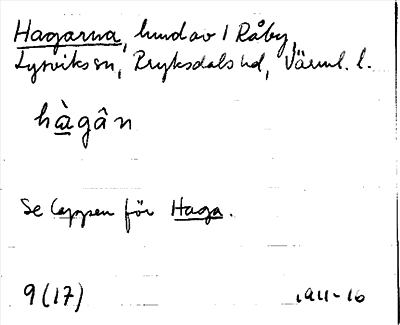 Hagarna, hmd av 1 Råby,
Lysviks sn, Fryksdals hd, Värml. l.
hàgân
Se lappen för Haga.
9(17)
1911-16